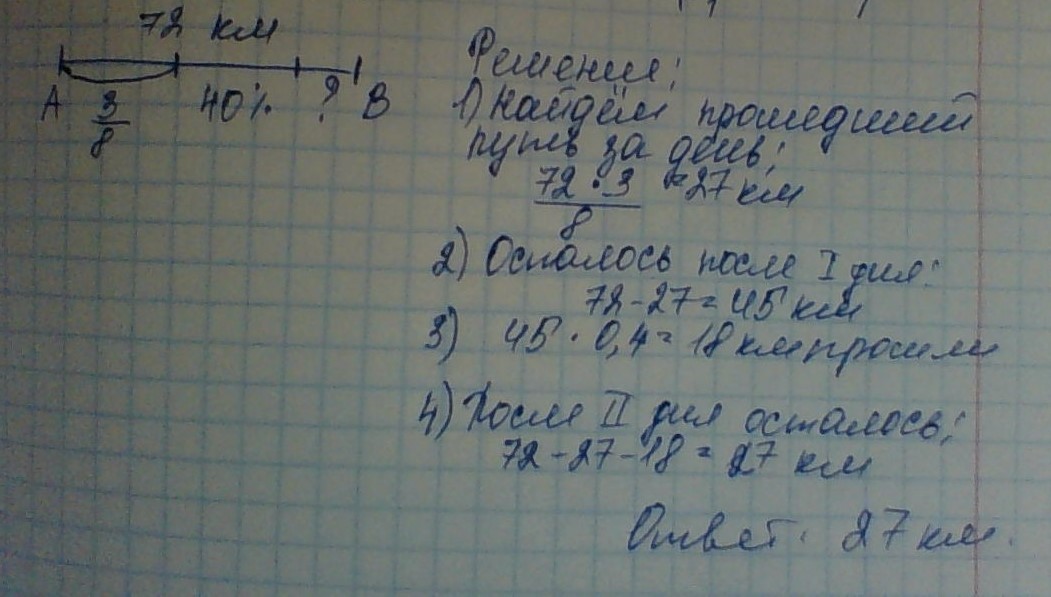 72 км
А 3/8 40% ? В
Решение;
1) Найдём прошедший
путь за день;
72 · 3 / 8 = 27 км
2) Осталось после I дня:
72 - 27 = 45 км
3) 45 · 0,4 = 18 км прошли
4) После II дня осталось;
72 - 27 - 18 = 27 км
Ответ: 27 км.